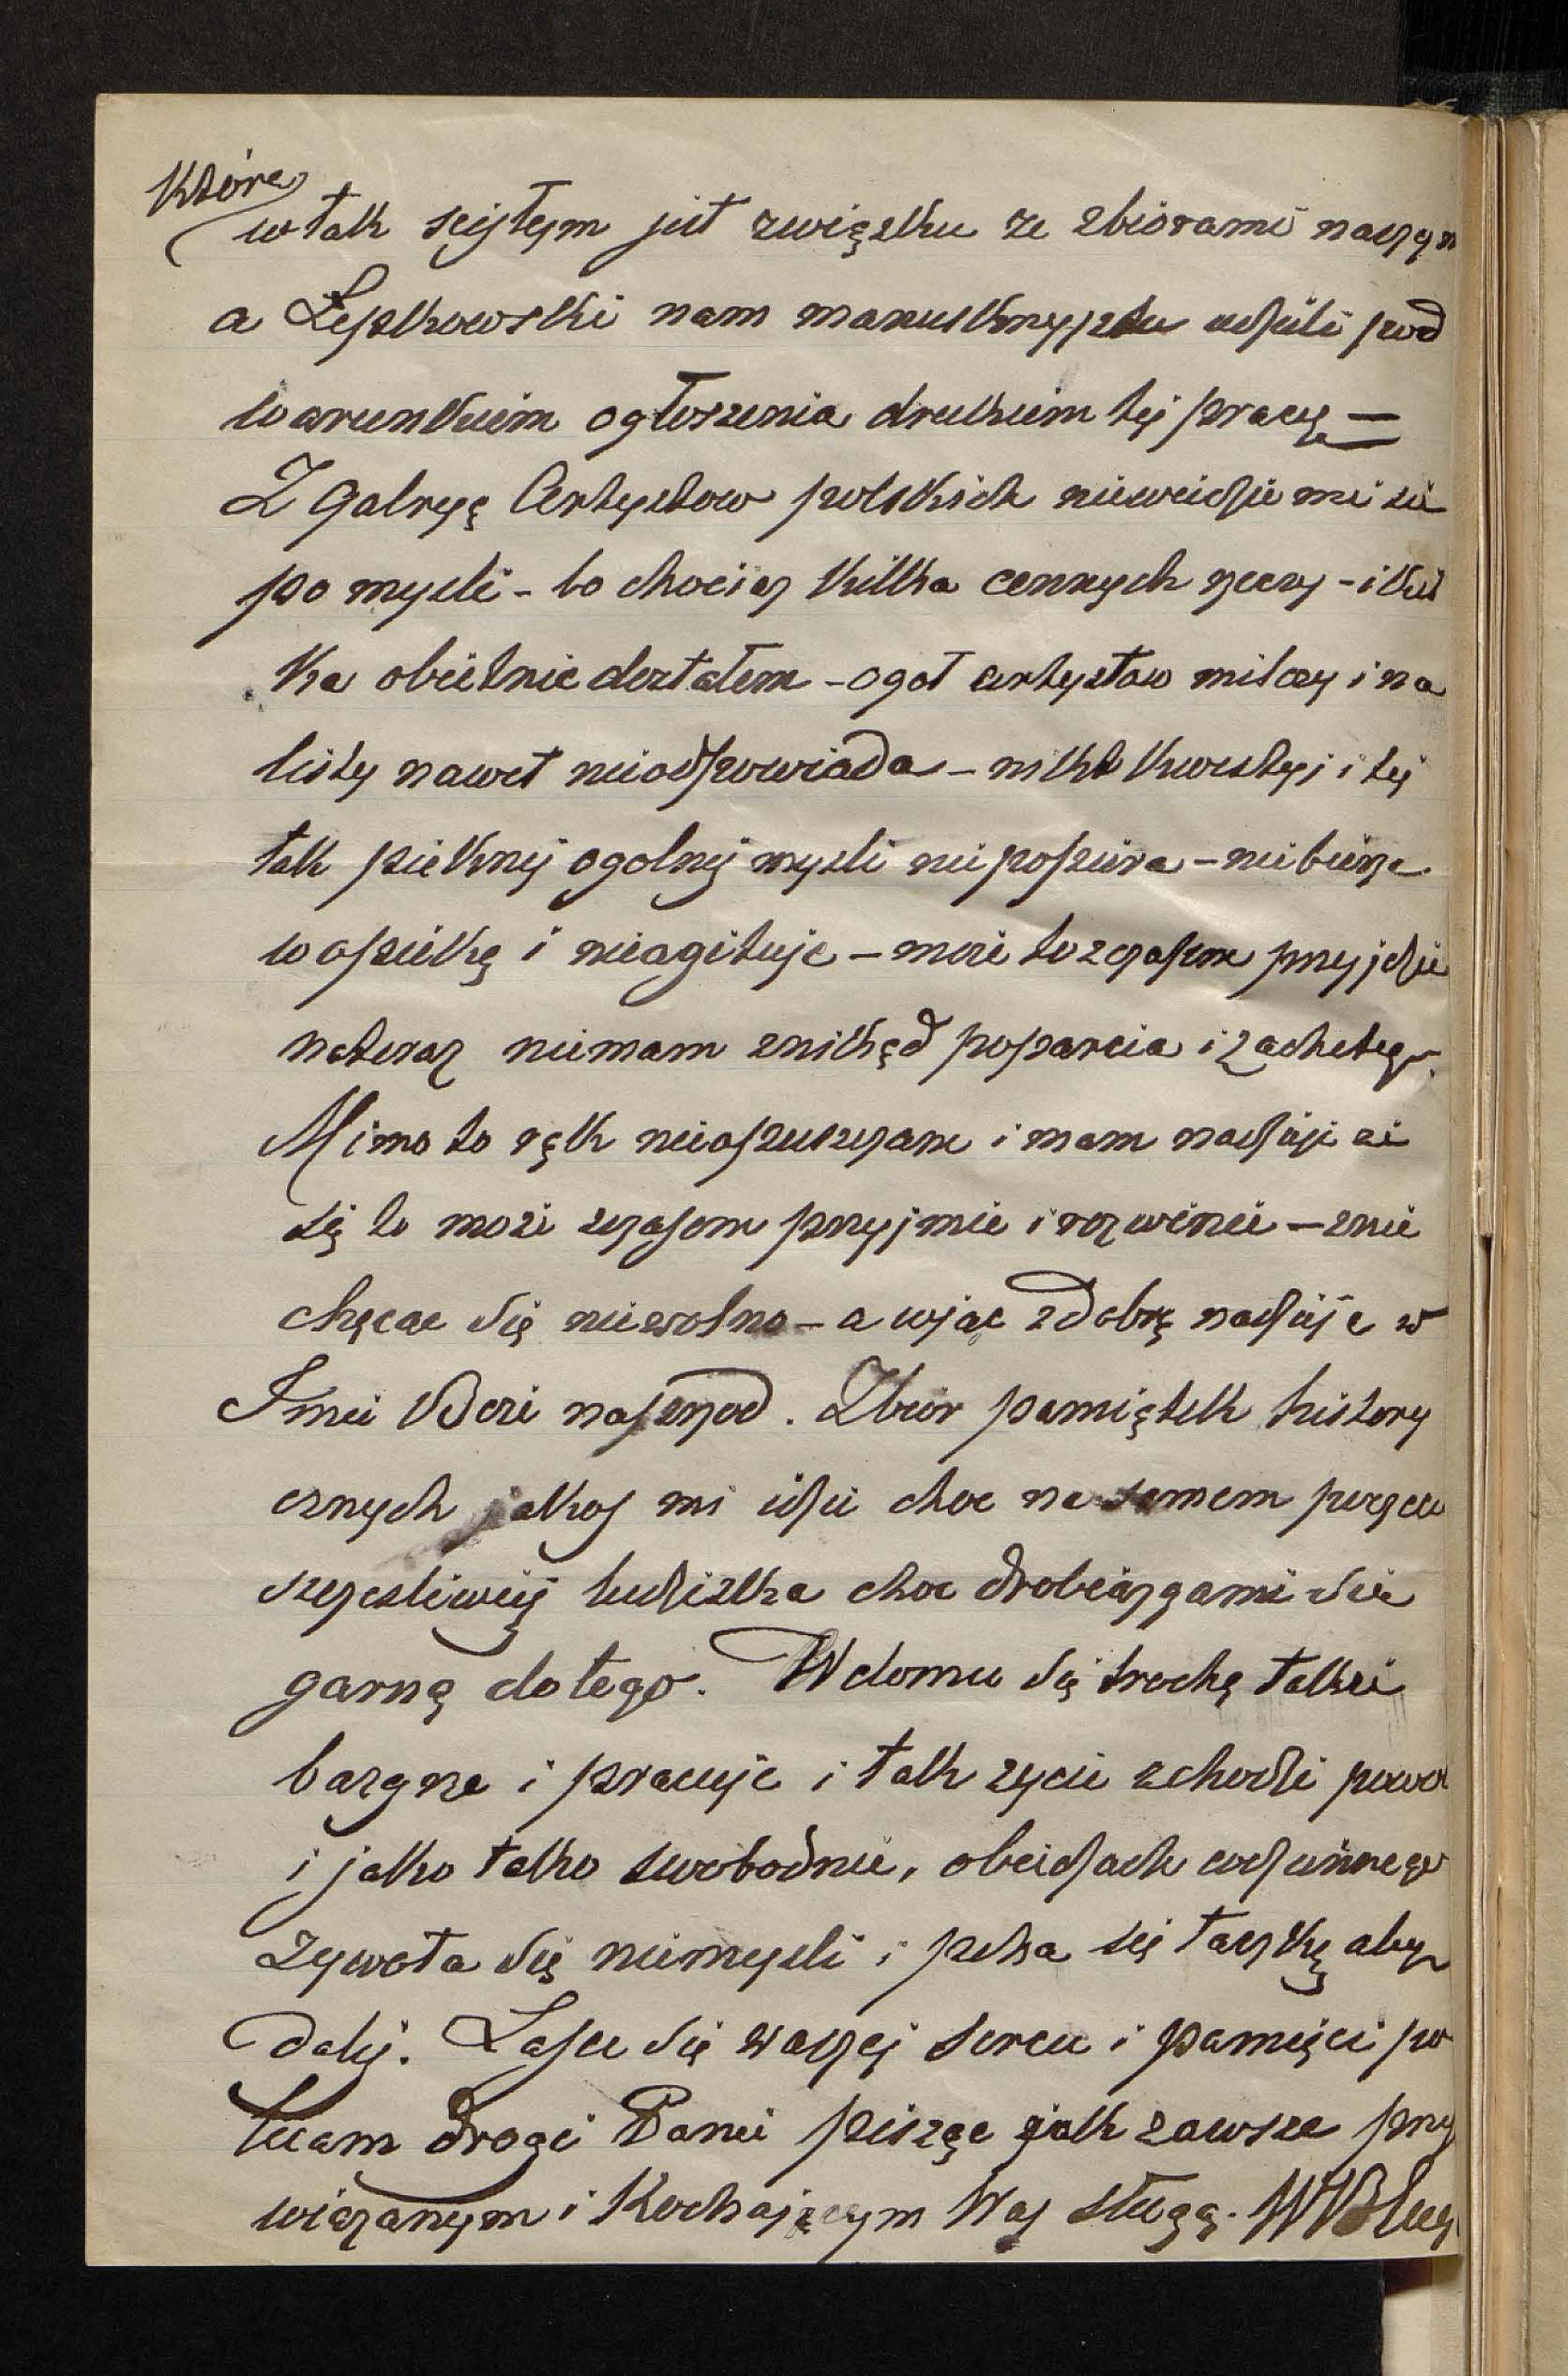 które
w tak scisłym jest związku ze zbiorami naszym
a Łepkowski nam manuskryptu udzieli pod
warunkiem ogłoszenia drukiem tej pracy —
Z Galryą Artystow polskich niewiedzie mi sie
po mysli - bo chociaz kilka cennych rzeczy - i kil
ka obietnic dostałem - ogoł artystow milczy i na
listy nawet nieodpowiada - nikt kwestyi i tej
tak pieknej ogolnej mysli niepopiera - niebierze
w opiekę i nieagituje - moze to z czasem przyjdzie
nateraz niemam znikąd poparcia i zachety.
Mimo to rąk nieopuszczam i mam nadzieje ze
się to moze z czasem przyjmie i rozwinie - znie
chęcac się niewolno - a więc z dobrą nadzieje w
Imie Boze naprzod. Zbior pamiątek history
cznych jakos mi idzie choc na samem początku
szczesliwiej ludziska choc drobiazgami sie
garną do tego. W domu się trochę takze
bazgrze i pracuje i tak zycie schodzi powoli
i jako tako swobodnie, o biedach codziennego
zywota się niemysli i pcha się taczkę aby
dalej. Łasce się waszej sercu i pamięci po
lecam drogi Panie pisząc jak zawsze przy
wiązanym i kochającym Was sługą.